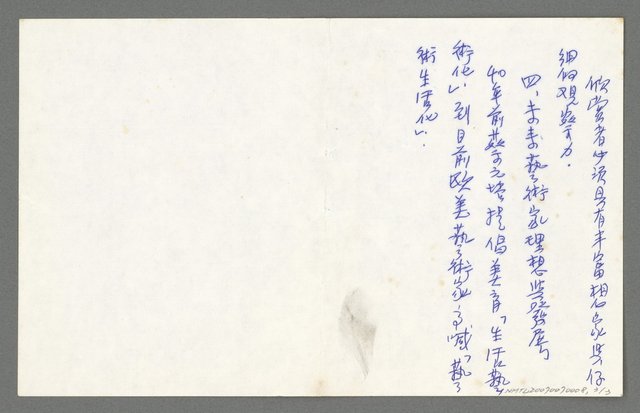 欣賞者必須具有丰富想象與仔
細的观察力.
四、未来藝術家理想與發展
40年前蔡元培提倡美育「生活藝
術化」到目前欧美藝術家高喊「藝
術生活化」.
NMTL20070070008, 3/3